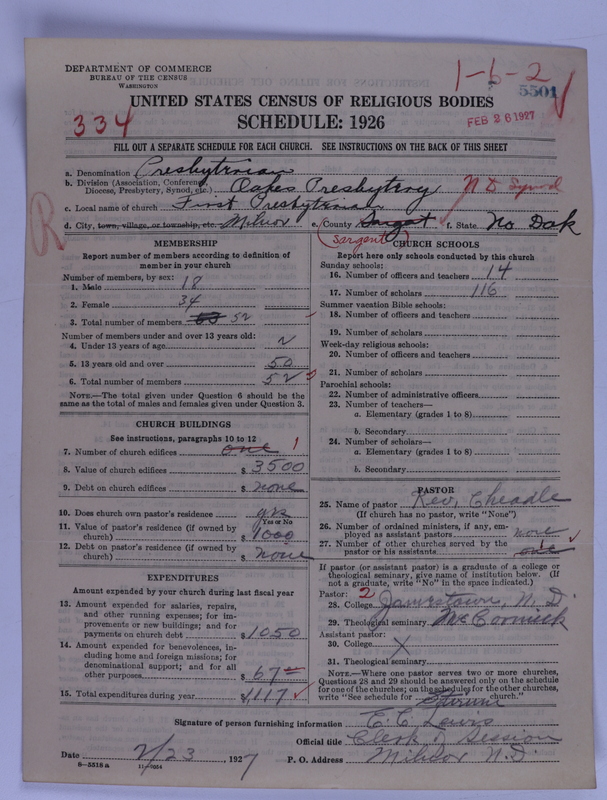 DEPARTMENT OF COMMERCE
BUREAU OF THE CENSUS
WASHINGTON
1-6-2
5501
UNITED STATES CENSUS OF RELIGIOUS BODIES
334
SCHEDULE: 1926
FEB 26 1927
FILL OUT A SEPARATE SCHEDULE FOR EACH CHURCH. SEE INSTRUCTIONS ON THE BACK OF THIS SHEET
a. Denomination Presbyterian
b. Division (Association, Conference, Diocese, Presbytery, Synod, etc.) Oakes Presbytery N D Synod
c. Local name of church First Presbyterian
d. City, town, village, or township, etc. Milnor e. County Sargent f. State No. Dak
Sargent
R
MEMBERSHIP
Report number of members according to definition of
member in your church
Number of members, by sex:
1. Male 18
2. Female 34
3. Total number of members 52
Number of members under and over 13 years old:
4. Under 13 years of age 2
5. 13 years old and over 50
6. Total number of members 52
NOTE.—The total given under Question 6 should be the
same as the total of males and females given under Question 3.
CHURCH BUILDINGS
See instructions, paragraphs 10 to 12
7. Number of church edifices one 1
8. Value of church edifices $ 3500
9. Debt on church edifices $ none
10. Does church own pastor's residence yes
Yes or No
11. Value of pastor's residence (if owned by
church) $ 1000
12. Debt on pastor's residence (if owned by
church) $ none
EXPENDITURES
Amount expended by your church during last fiscal year
13. Amount expended for salaries, repairs,
and other running expenses; for im-
provements or new buildings; and for
payments on church debt $ 1050
14. Amount expended for benevolences, in-
cluding home and foreign missions; for
denominational support; and for all
other purposes $ 67
15. Total expenditures during year $ 1117
CHURCH SCHOOLS
Report here only schools conducted by this church
Sunday schools:
16. Number of officers and teachers 14
17. Number of scholars 116
Summer vacation Bible schools:
18. Number of officers and teachers
19. Number of scholars
Week-day religious schools:
20. Number of officers and teachers
21. Number of scholars
Parochial schools:
22. Number of administrative officers
23. Number of teachers—
a. Elementary (grades 1 to 8)
b. Secondary
24. Number of scholars—
a. Elementary (grades 1 to 8)
b. Secondary
PASTOR
25. Name of pastor Rev. Cheadle
(If church has no pastor, write "None")
26. Number of ordained ministers, if any, em-
ployed as assistant pastors none
27. Number of other churches served by the
pastor or his assistants one
If pastor (or assistant pastor) is a graduate of a college or
theological seminary, give name of institution below. (If
not a graduate, write "No" in the space indicated.)
Pastor: 2
28. College Jamestown, N. D.
29. Theological seminary McCormick
Assistant pastor:
30. College X
31. Theological seminary
NOTE.—Where one pastor serves two or more churches,
Questions 28 and 29 should be answered only on the schedule
for one of the churches; on the schedules for the other churches,
write "See schedule for church."
Signature of person furnishing information E. C. Lewis
Official title Clerk of Session
Date 2/23, 1927 P. O. Address Milnor N.D.
8-5518 a